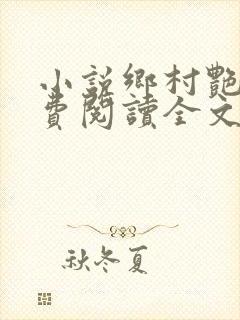 小說鄉村艷
費閱讀全文
秋冬夏